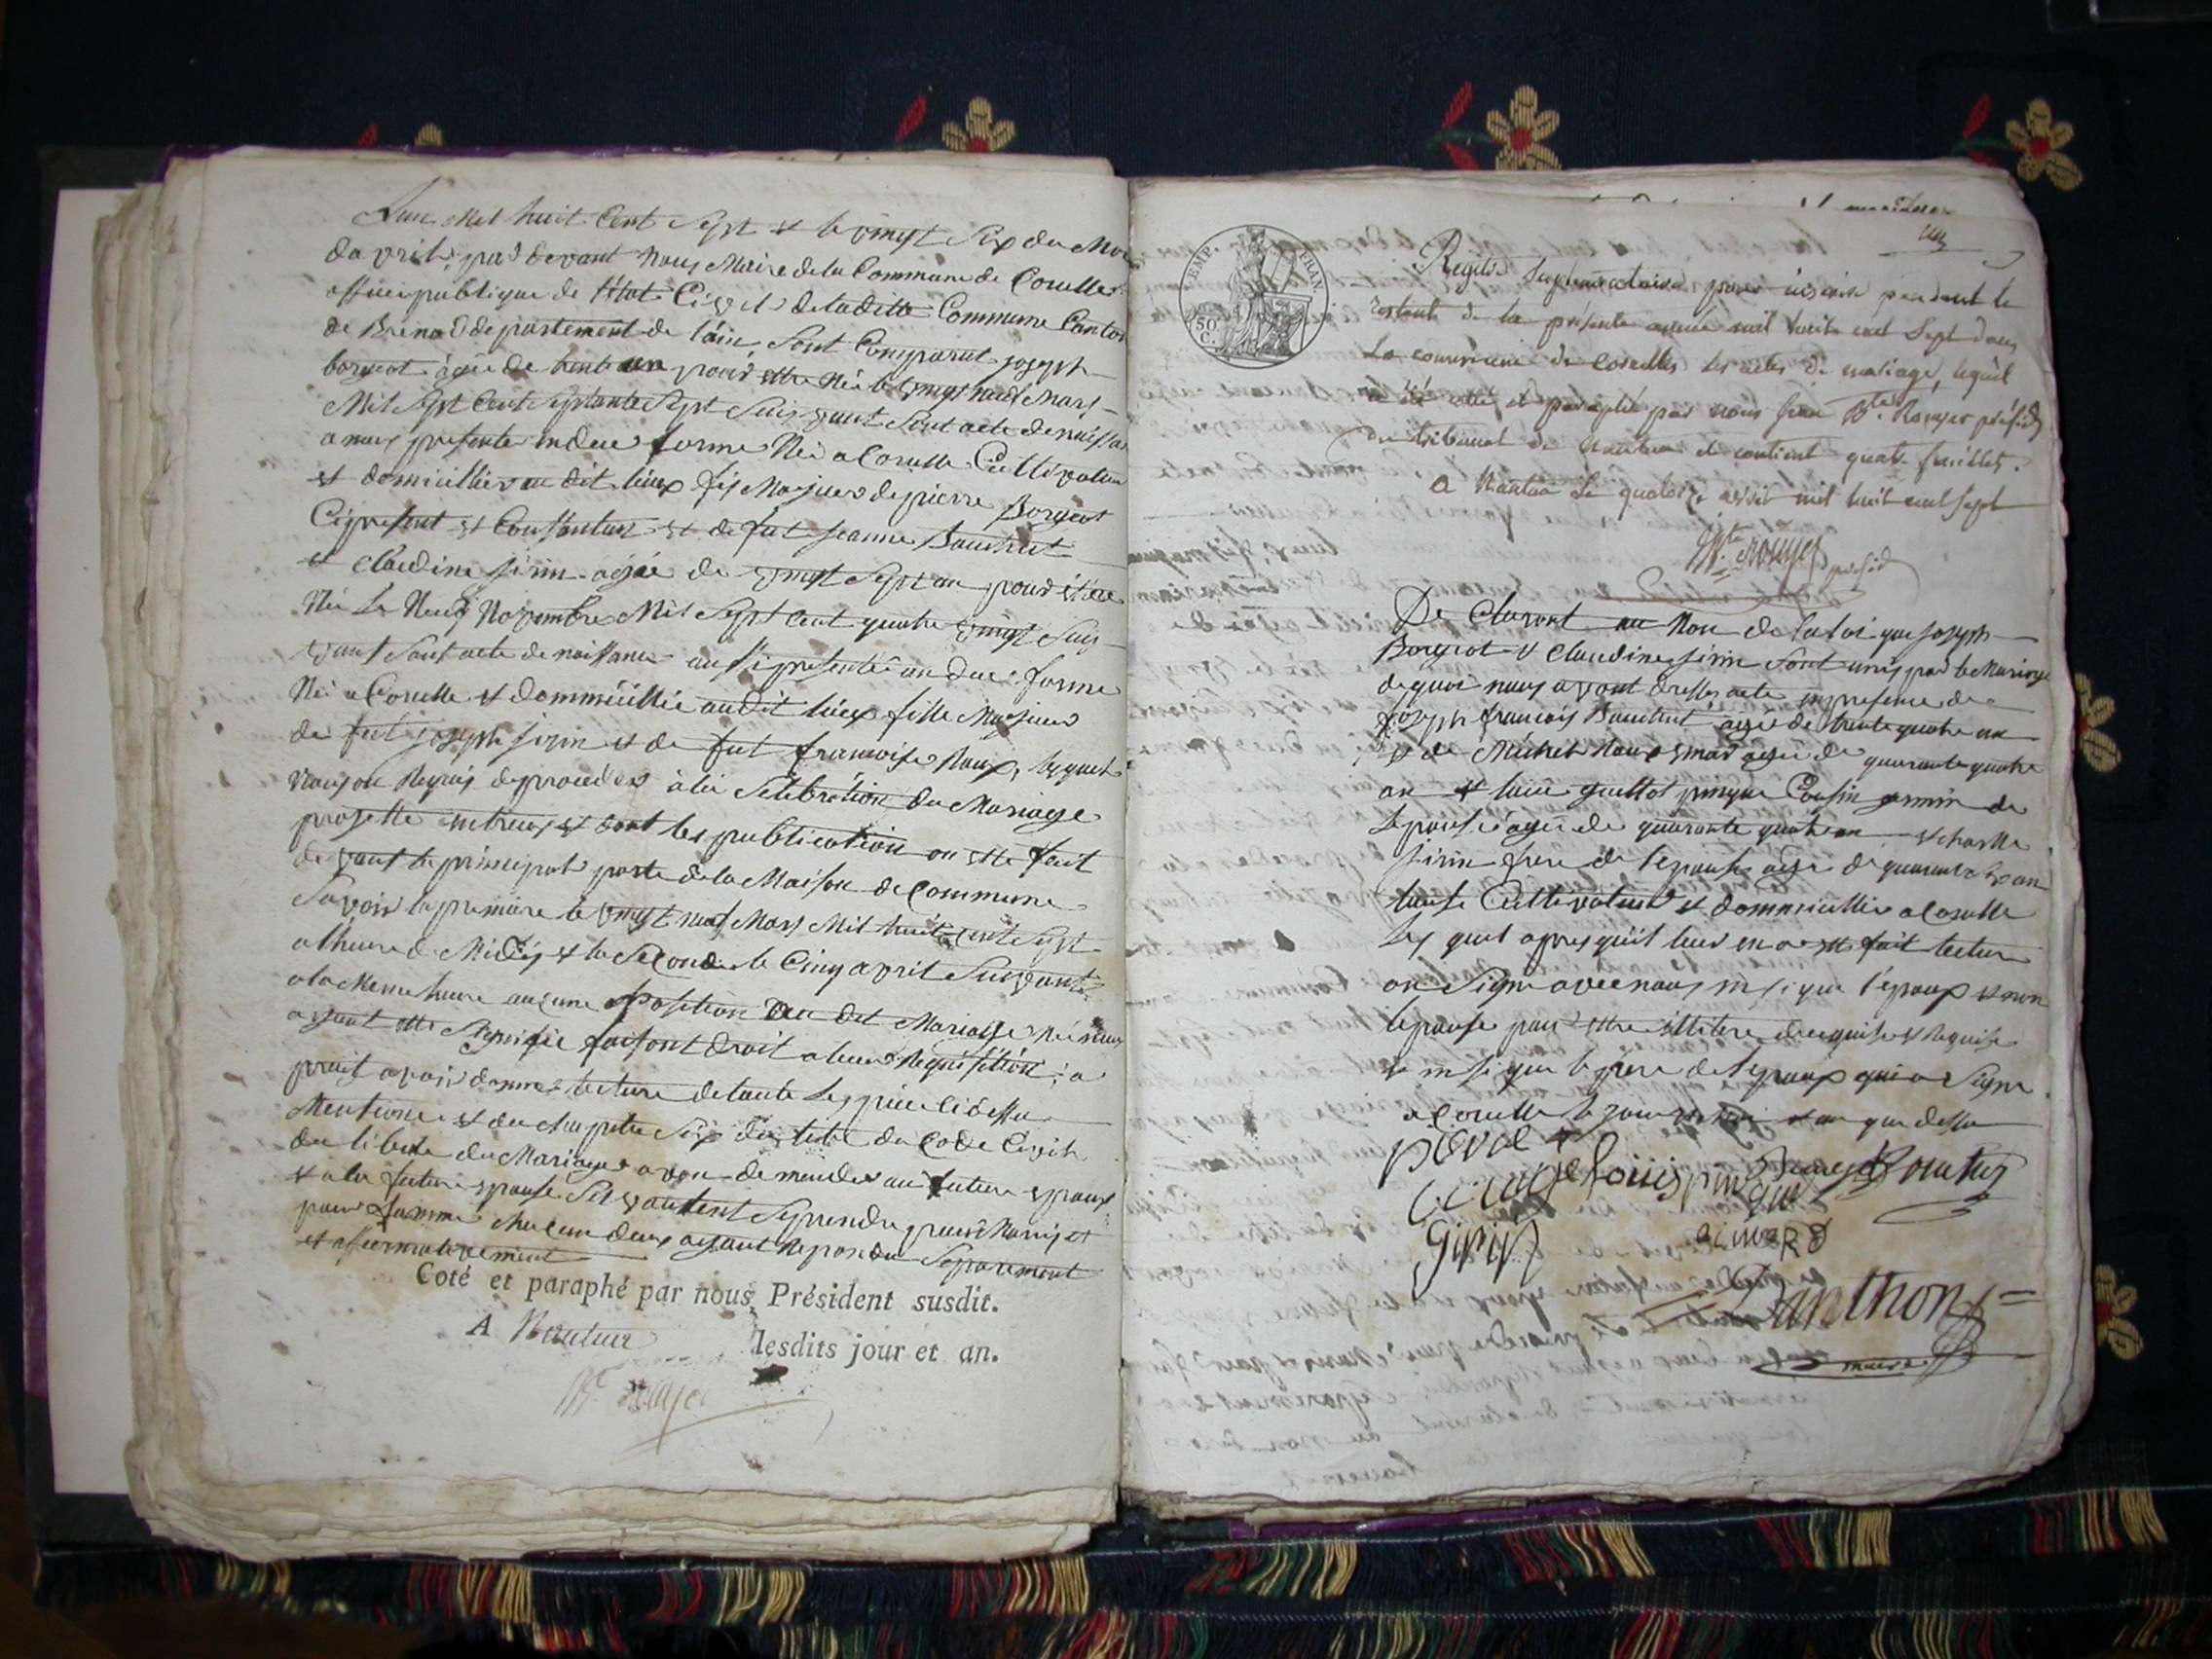 Lan Mil huit Cent Sept & le vingt Six du Moi
davril, par devant nous Maire de la Commune de Corcelle
officié publique de l'état Civil de la ditte Commune Canton
de Brenod departement de l'ain, Sont Comparut joseph
borgeot agée de trent un pour etre Née le vingt neuf Mars
Mil Sept Cent Septante Sept Suivant Sont acte de naissan
a nous presente en due forme Née a Corcelle Cultivateur
et domicillier au dit lieux fis Majeur de pierre Borgeot
Ci present & Consentant & de fut jeanne
et Claudine jirin agée de vingt Sept an pour être
Née Le Neuf Novembre Mil Sept Cent quatre vingt Sui
vant Sont acte de naissance aussi presenté an due forme
Née a Corcelle & dommicillié au dit lieux fille Majeur
de fut joseph jirin & de fut francoise Roux, lesquels
nous on Requis de proceder à la Selebration du Mariage
projetté entreux & dont les publication on etté fait
devant la principal porte de la Maison de Commune
Savoir la premiere le vingt neuf Mars Mil huit cent Sept
a lheure de Midÿ & la Seconde le Cinq avril Suivant
a la Meme heure aucune oposition au dit Mariage Ne nous
ayant etté Signifié faisont droit a leur Requisition; a
prait avoir donnes lecture de toute les piece ci dessu
Mentione & du chapitre Six du titre du Code Civil
du Mariage avon demander au futeur epoux
& a la future epouse Sil vaulent Seprendre pour Mari et
pour famme chacun deux ayant Repondu Separement
et afirmativement
Coté et paraphé par nous Président susdit.
A Nantua lesdits jour et an.
Bte Rouyer
EMP. FRAN.
50 C.
Registre Suplementaire pour inscrire pendant le
restant de la présente année mil huit cent Sept dans
La commune de Corcelles les actes de mariage, lequel
a été cotté et paraphé par nous Jean Bte. Rouyer présidt
du tribunal de Nantua et contient quatre feuillets.
A Nantua Le quatorze avril mil huit cent sept
Bte Rouyer présid
De Claront au Non de la loi que joseph
Borgeot & Claudine jirin Sont unis par le Mariage
de quoi nous avont dresses acte en presence de
joseph francois agée de trente quatre an
& de Michel Roux agée de quarante quatre
an & louis guillot pingue Cousin germin de
Lepouse agée de quarante quatre an & charlle
jirin frere de lepouse agée de quarante an
touse Cultivateur & dommicillier a Corcelle
Les quel apres quil leur en a etté fait lecture
on Signe avec nous insi que l'epoux & non
lepouse pour etre illitere de enquise & Requise
& insi que le pere de lepoux qui a Signe
a Corcelle le jour Moi & an que dessu
louis pingue
Girin
Ganthon
maire